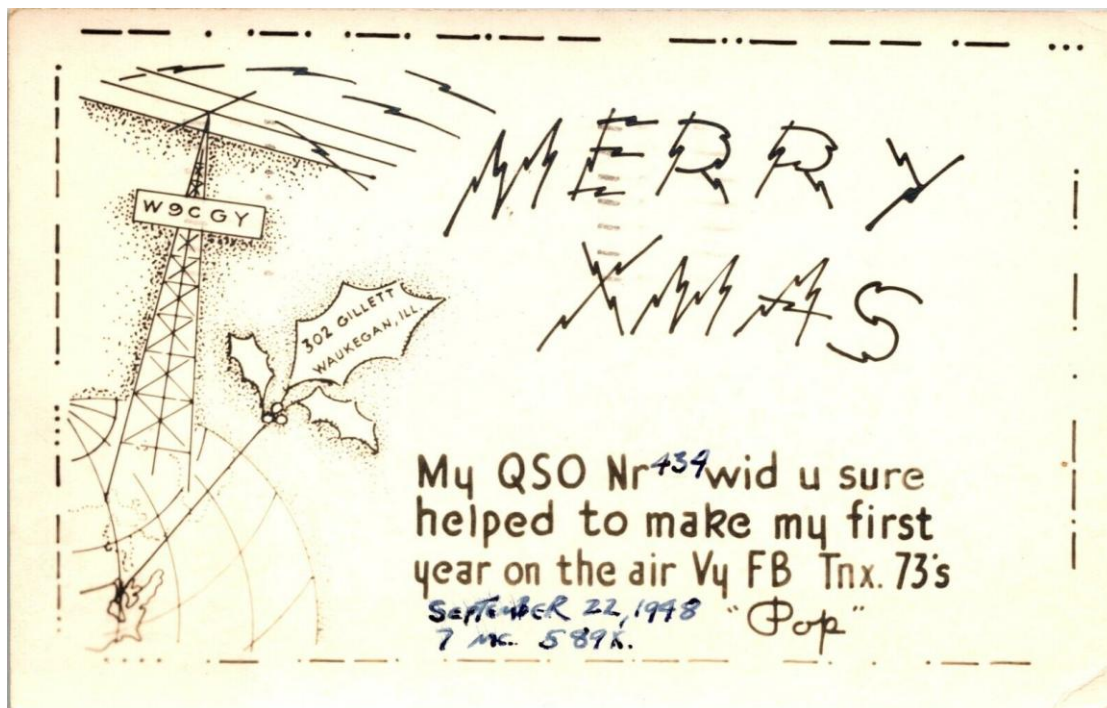 W9CGY
302 GILLETT
WAUKEGAN, ILL.
MERRY
XMAS
My QSO Nr 434 wid u sure
helped to make my first
year on the air Vy FB Tnx. 73's
SEPTEMBER 22, 1948 "Pop"
7 mc. 589X.